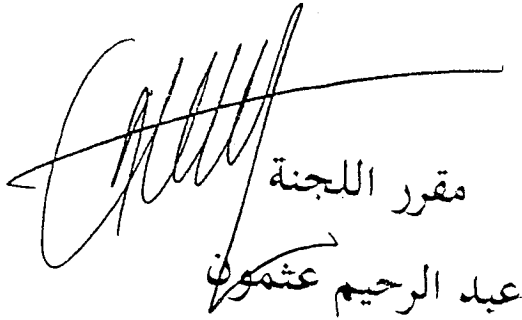 مقرر اللجنة
عبد الرحيم عثمون